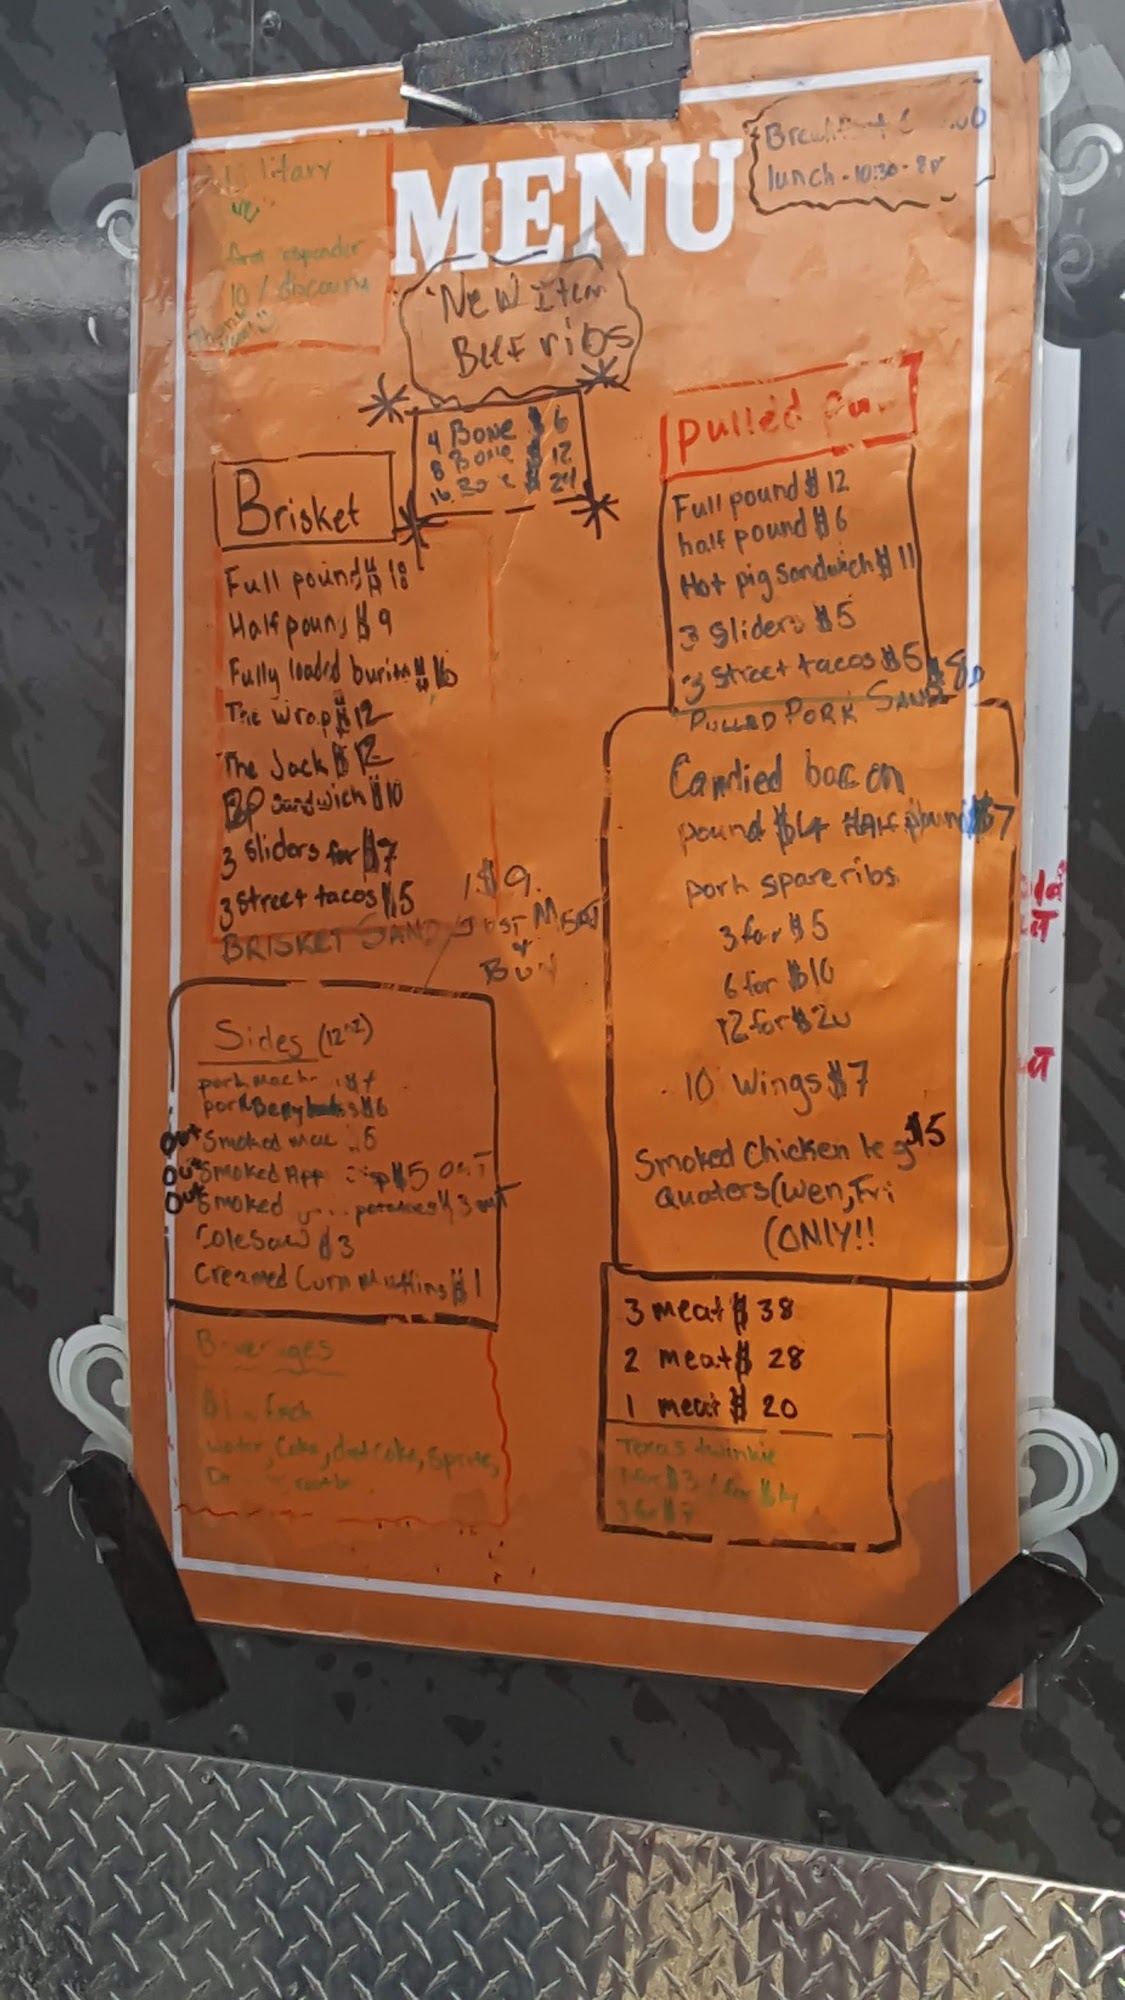 MENU
first responder
10 / discount
Thank
you
lunch - 10:30 - 8P
New Item
Beef ribs
4 Bone $ 6
8 Bone $ 12
16 $ 24
Brisket
Full pound $ 18
Half poun $ 9
Fully loaded $ 16
The Wrap $ 12
The Jack $ 12
sandwich $10
3 Sliders for $7
3 street tacos $5
BRISKET SAND JUST MEAT
$9.
&
Pulled
Full pound $ 12
half pound $ 6
Hot pig sandwich $ 11
3 Sliders $5
3 street tacos $5
PULLED PORK SAND $8
Candied bacon
pound $14 HALF $7
pork spare ribs
3 for $5
6 for $10
12 for $20
10 Wings $7
Smoked Chicken leg $5
Quaters (Wen, Fri
(ONLY!!
Sides
pork
pork Belly $6
Out Smoked Mac 5
Out Smoked App $5 OUT
Out Smoked potatoes $3 out
Colesaw $3
Creamed Corn Muffins $1
Beverages
Each
water, Coke, diet coke, Sprite,
3 meat $ 38
2 meat $ 28
1 meat $ 20
Texas twinkie
1 for $3